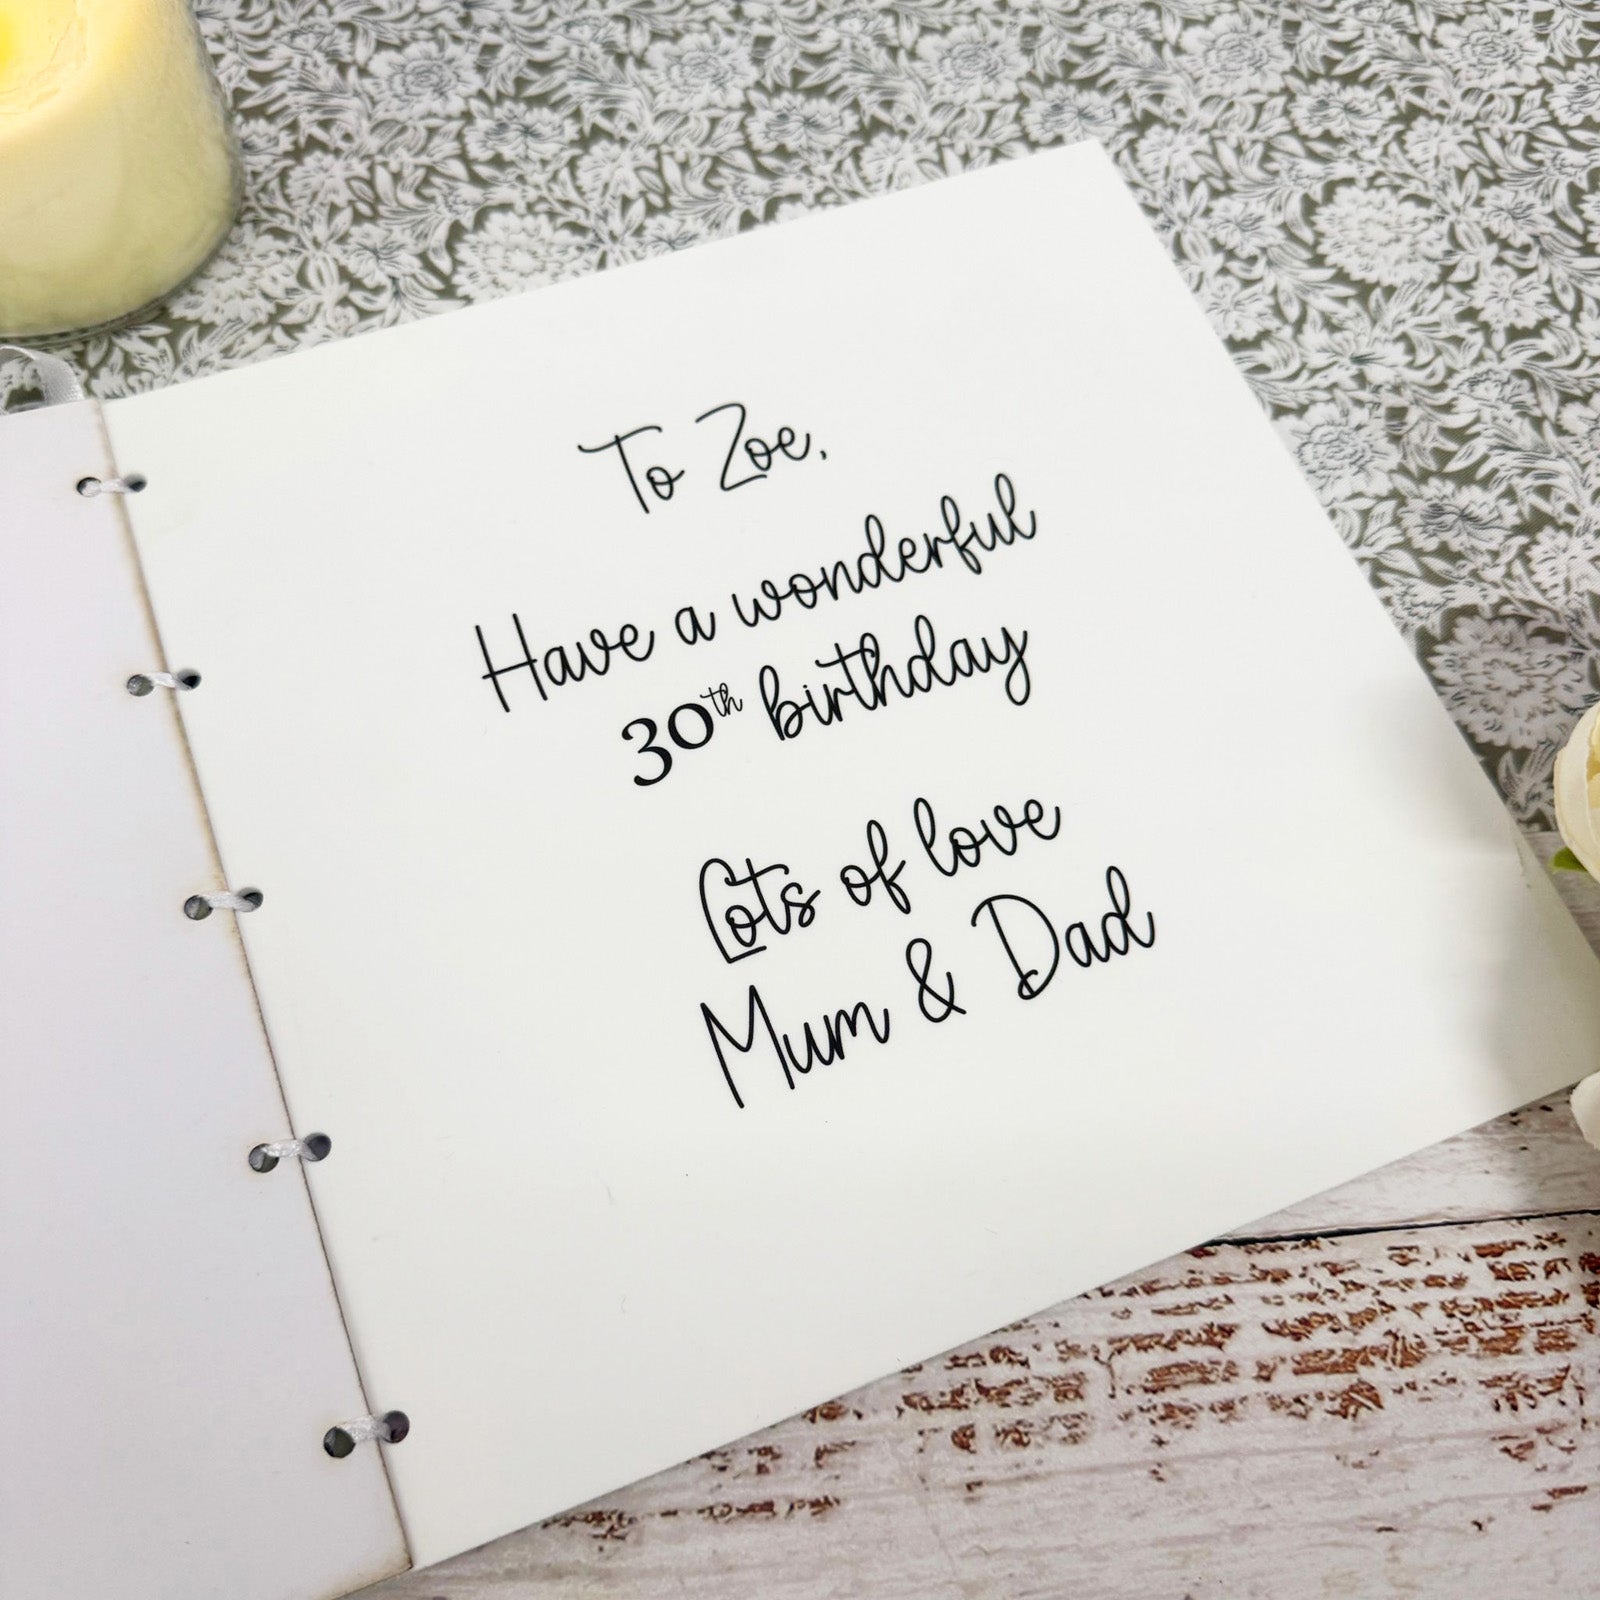 To Zoe,
Have a wonderful
30th birthday
Lots of love
Mum & Dad